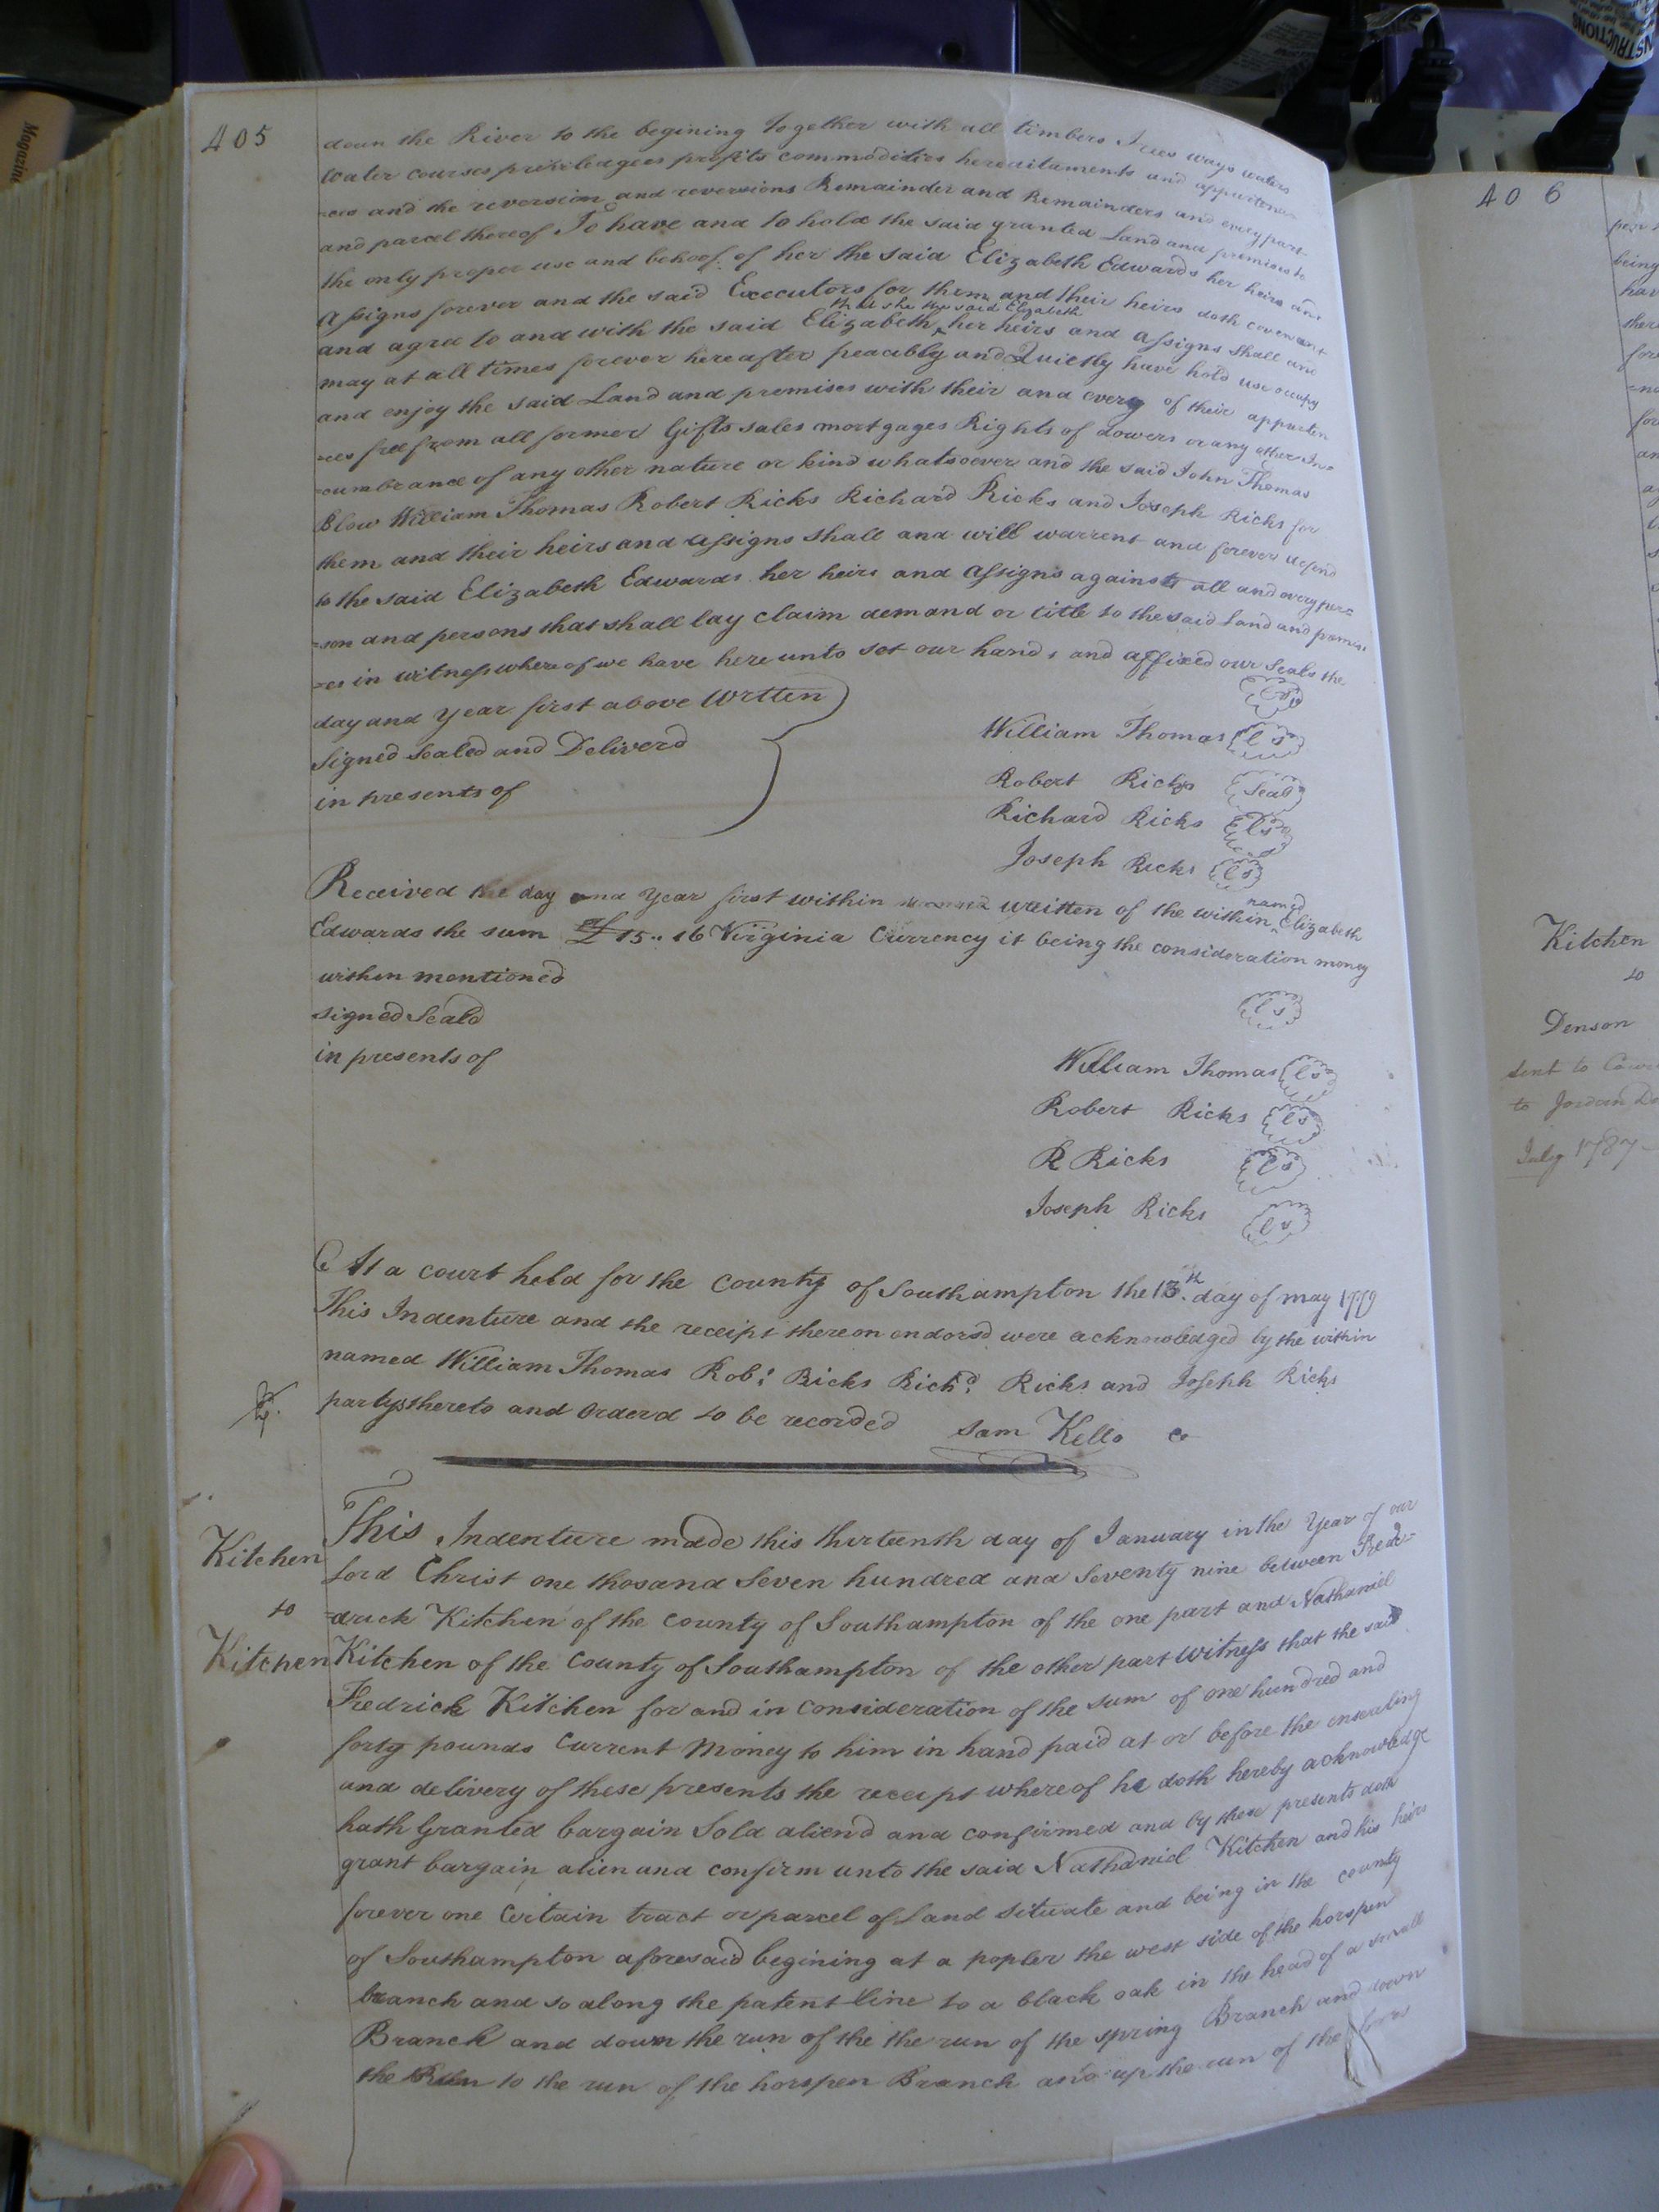 405
down the River to the begining together with all timbers Trees ways waters
water courses priviledges profits commodities hereditaments and appurtenan
=ces and the reversion and reversions Remainder and Remainders and every part
and parcel thereof To have and to hold the said granted Land and premises to
the only proper use and behoof of her the said Elizabeth Edwards her heirs and
Assigns forever and the said Executors for them and their heirs doth covenant
that she the said Elizabeth
and agree to and with the said Elizabeth her heirs and Assigns shall and
may at all times forever hereafter peacibly and Quietly have hold use occupy
and enjoy the said Land and premises with their and every of their appurten
=ces free from all former Gifts sales mortgages Rights of dowers or any other In=
=cumbrance of any other nature or kind whatsoever and the said John Thomas
Blow William Thomas Robert Ricks Richard Ricks and Joseph Ricks for
them and their heirs and assigns shall and will warrent and forever defend
to the said Elizabeth Edwards her heirs and Assigns against all and every per=
=son and persons that shall lay claim demand or title to the said Land and premis
=es in witness whereof we have hereunto set our hands and affixed our Seals the
day and year first above written
Signed Sealed and Deliverd
in presents of
ls
William Thomas ls
Robert Ricks Seal
Richard Ricks ls
Joseph Ricks ls
Received the day and year first within written of the within named Elizabeth
Edwards the sum of £15..16 Virginia Currency it being the consideration money
within mentioned
signed Seald
in presents of
ls
William Thomas ls
Robert Ricks ls
R Ricks ls
Joseph Ricks ls
At a court held for the county of Southampton the 13th day of may 1779
This Indenture and the receipt thereon endorsd were acknowledged by the within
named William Thomas Robt Ricks Richd Ricks and Joseph Ricks
partys thereto and Orderd to be recorded Sam Kello
Kitchen
to
Kitchen
This Indenture made this thirteenth day of January in the Year of our
Lord Christ one thosand Seven hundred and Seventy nine between Frede=
=drick Kitchen of the county of Southampton of the one part and Nathaniel
Kitchen of the County of Southampton of the other part Witness that the said
Fredrick Kitchen for and in Consideration of the sum of one hundred and
forty pounds Current Money to him in hand paid at or before the ensealing
and delivery of these presents the receipt whereof he doth hereby acknowledge
hath Granted bargain Sold aliend and confirmed and by these presents doth
grant bargain alien and confirm unto the said Nathaniel Kitchen and his heirs
forever one Certain tract or parcel of Land Situate and being in the county
of Southampton aforesaid begining at a popler the west side of the horspen
branch and so along the patent line to a black oak in the head of a small
Branch and down the run of the the run of the spring Branch and down
the Run to the run of the horspen Branch and up the run of the
406
Kitchen
to
Denson
Sent to
to Jordan
July 1787